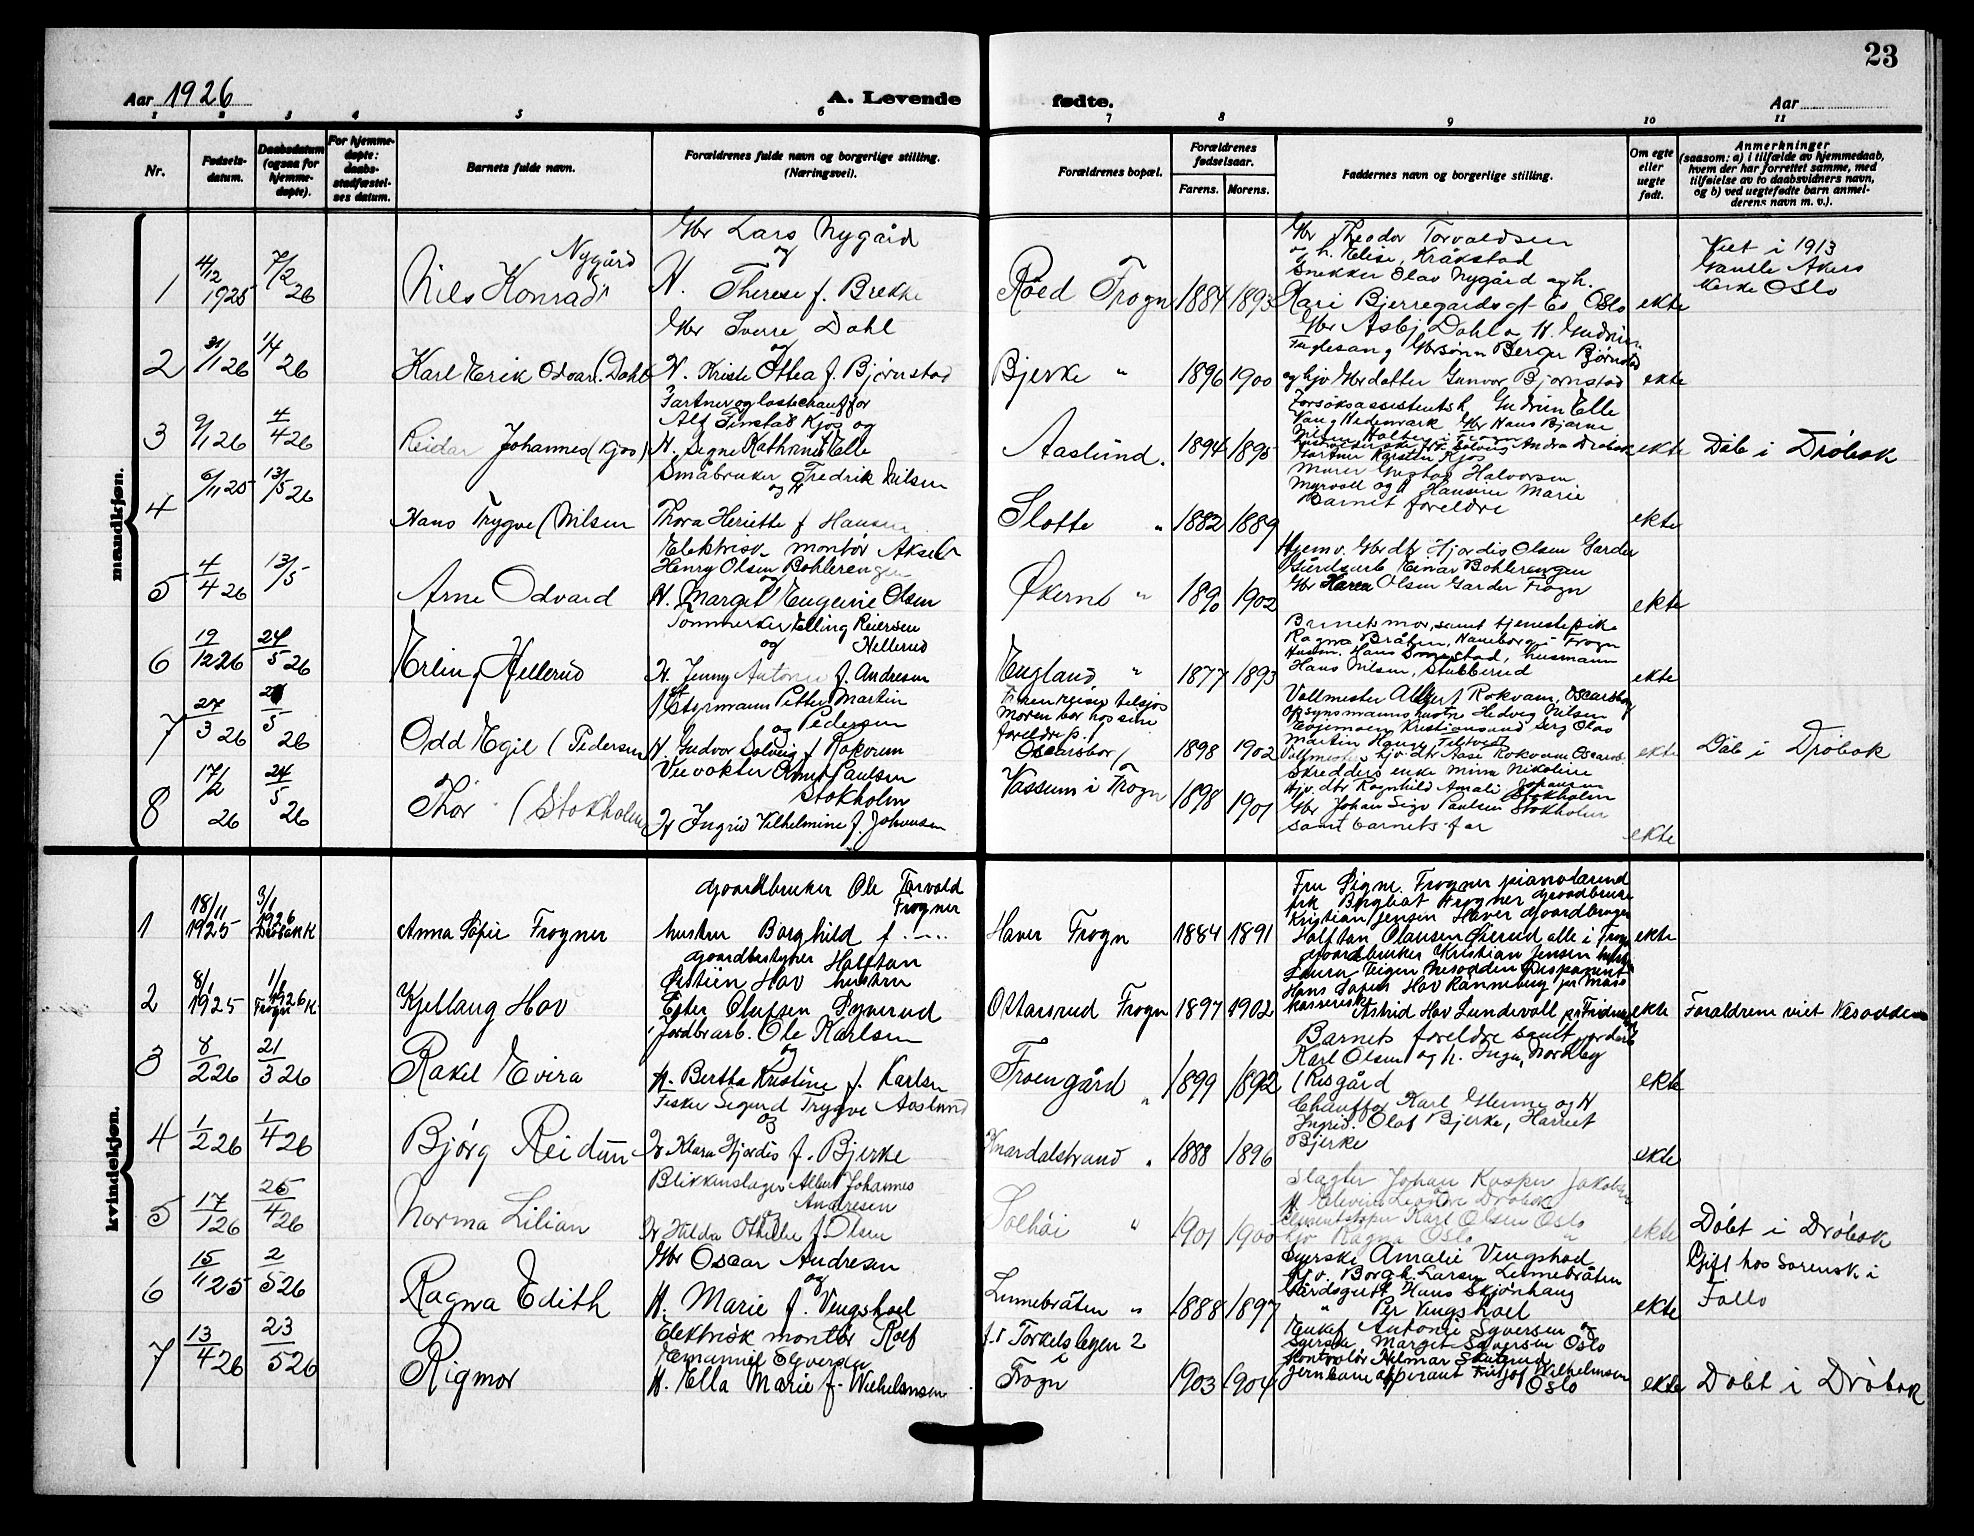 23
Aar 1926
A. Levende
fødte.
Aar
1 2 3 4 5 6 7 8 9 10 11
Nr.
Fødsels-
datum.
Daabsdatum
(ogsaa for
hjemme-
døpte).
For hjemme-
døpte:
daabs-
stadfæstel-
ses datum.
Barnets fulde navn.
Forældrenes fulde navn og borgerlige stilling.
(Næringsvei).
Forældrenes bopæl.
Forældrenes
fødselsaar.
Farens. Morens.
Faddernes navn og borgerlige stilling.
Om egte
eller
uegte
født.
Anmerkninger
(saasom: a) i tilfælde av hjemmedaab,
hvem der har forrettet samme, med
tilføielse av to daabsvidners navn,
og b) ved uegtefødte barn anmel-
derens navn m. v.).
mandkjøn.
1
4/12
1925
7/2
26
Nygård
Nils Konrad
Gbr Lars Nygård
og
H. Therese f. Brekke
Røed Frogn
1884 1893
Gbr Theodor Torvaldsen
og h. Elise, Kråkstad
Snekker Olav Nygård og h.
Kari Bjerregårdsgt Oslo
ekte
Viet i 1913
Gamle Akers
kirke Oslo
2
31/1 26
1/4
26
Karl Erik Edvard (Dahl
Gbr Sverre Dahl
og
H. Othea f. Bjørnstad
Bjerke "
1896 1900
Gbr Asbj Dahl og H. Gudrun
Fuglesang Gbrsønn Berger Bjørnstad
og hjv Gbrdatter Gunvor Bjørnstad
ekte
3
9/1 26
4/4 26
Reidar Johannes (Kjos)
Gartner og lastechauffør
Alf Finstad Kjos og
H. Signe Kathrine Elle
Aaslund.
1894 1895
Forsøksassistent Gudrun Elle
Vang Hedemark Gbr Hans Bjarne
Nilsen
Gartner Karsten Kjos
ekte
Døb i Drøbak
4
6/11 25
13/5 26
Hans Trygve (Nilsen
Småbruker Fredrik Nilsen
og H
Thora Heriette f Hansen
Slotte "
1882 1889
Murer Gustav Halvorsen
Myrvoll og H Hansine Marie
Barnet foreldre
ekte
5
4/4 26
13/5
Arne Odvard
Elektrisk montør Aksel
Henry Olsen Bohlerengen
og
H. Margit Eugenie Olsen
Økern "
1890 1902
Hjemv. Gbrdtr Hjørdis Olsen Garder
Gårdsarb Einar Bohlerengen
Gbr Olsen Garder Frogn
ekte
6
19/12 26
24/5 26
Erling Hellerud
Tømmerkjører Elling Reiersen
og Hellerud
H. Jenny Antonie f. Andresen
England "
1877 1893
Barnets mor, samt tjenestepike
Ragna Bråten, Haneborg i Frogn
Husm. Hans husmann
Hans Nilsen, Stubberud
ekte
7
27/3 26
5
26
Odd Egil (Pedersen
Styrmann Petter Martin
og Pedersen
H. Gudvor Solveig f Rokvam
Faren reiser tilsjøs
Moren bor hos sine
foreldre p.t
Oscarsborg
1898 1902
Vollmester Albert Rokvam, Oscarsborg
Opsynsmannshustr Hedvig Nilsen
Kristiansand Serg Olav
Martin Hansen
Vollmesters hjv. dtr Aase Rokvam Oscarsb.
ekte
Døb i Drøbak
8
17/2
26
24/5
26
Thor (Stokholm
Veivokter Paulsen
Stokholm
H Ingrid Vilhelmine f. Johansen
Vassum i Frogn
1898 1901
Skredders enke Mina Nikoline
Hjv. dtr Ragnhild Amali Johansen
Gbr Johan Sigv Paulsen Stokholm
samt barnets far
ekte
kvindekjøn.
1
18/11
1925
3/1
1926
Drøbak K
Anna Sofie Frogner
Gaardbruker Ole Torvald
Frogner
hustru Borghild f. .....
Haver Frogn
1884 1891
Fru Signe Frogner pianolærerind
frk Bergliot Frogner gaardbruker
Kristian Jensen Haver gaardbruger
Halftan Olausen Økerud alle i Frogn
ekte
2
8/
1925
1/
1926
Frogn K
Kjellaug Hov
gaardbestyrer Halftan
Østein Hov hustru
Ester Olufsen Syverud
Ottarsrud Frogn
1897 1902
gaardbruker Kristian Jensen
Laura Teigen Nesodden Disponent
Hans Hov Ranneberg
Astrid Hov Lundevoll
ekte
Forældrene viet Nesodden
3
8/2 26
21/3 26
Rakel Evira
Jordbrarb. Ole Karlsen
og
H. Bertha Kristine f. Karlsen
Froengård "
1899 1892
Barnets foreldre samt jordarb
Karl Olsen og h. Inga, Nordby
(Risgård
ekte
4
1/2 26
1/4 26
Bjørg Reidun
Fisker Sigurd Trygve Aaslund
og
H Klara Hjørdis f. Bjerke
Knardalstrand "
1888 1896
Chauffør Karl og H
Ingrid. Olaf Bjerke, Harriet
Bjerke
ekte
5
17/1 26
25/4 26
Norma Lilian
Blikkenslager Albert Johannes
Andresen
og
H Hilda Othelie f. Olsen
Solhøi "
1901 1900
Slagter Johan Kasper Jakobsen
H Drøbak
Karl Olsen Oslo
hjv Ragna Oslo "
ekte
Døbt i Drøbak
6
15/11 25
2/5 26
Ragna Edith
Gbr Oscar Andresen
og
H. Marie f. Vengshoel
Linnebråten "
1888 1897
Syerske Amalie Vengshoel
hjv. Borgh. Larsen Linnebråten
Gårdsgutt Hans Skjønhaug
" Per Vengshoel
ekte
Gift hos Sorensk i
Follo
7
13/4 26
23/5 26
Rigmor
Elektrisk montør Rolf
Emanuel Syversen
H. Ella Marie f. Wilhelmsen
f.t Torkelslegen 2
i
Frogn
1903 1904
Enkef Antonie Syversen og
Syerske Margit Syversen Oslo
Kontorist Hilmar
Jernbaneaspirant Fritjof Wilhelmsen
Oslo
ekte
Døbt i Drøbak